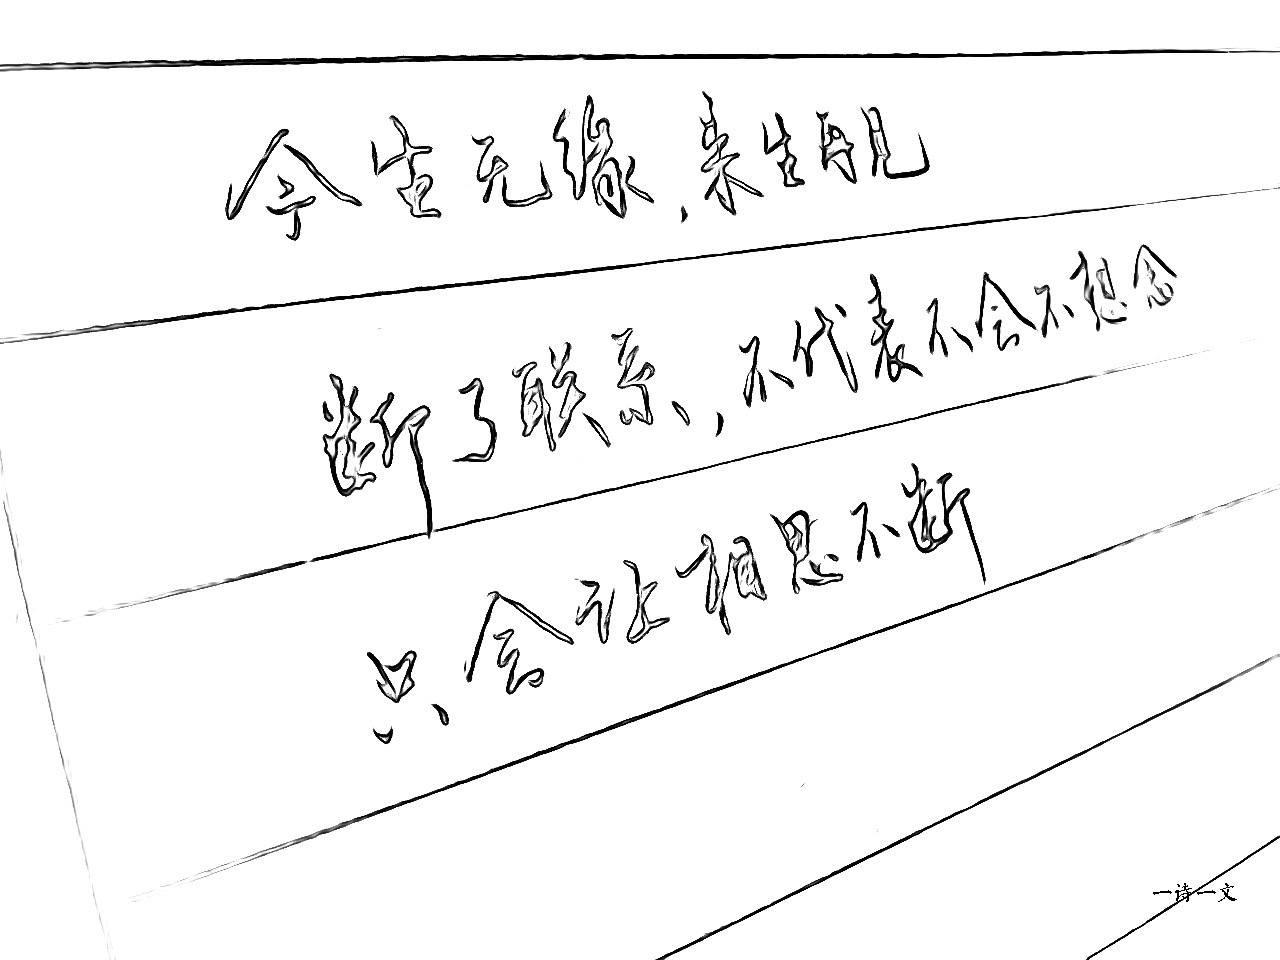 今生无缘，来生再见
断了联系，不代表不会不想念
只会让相思不断
一诗一文